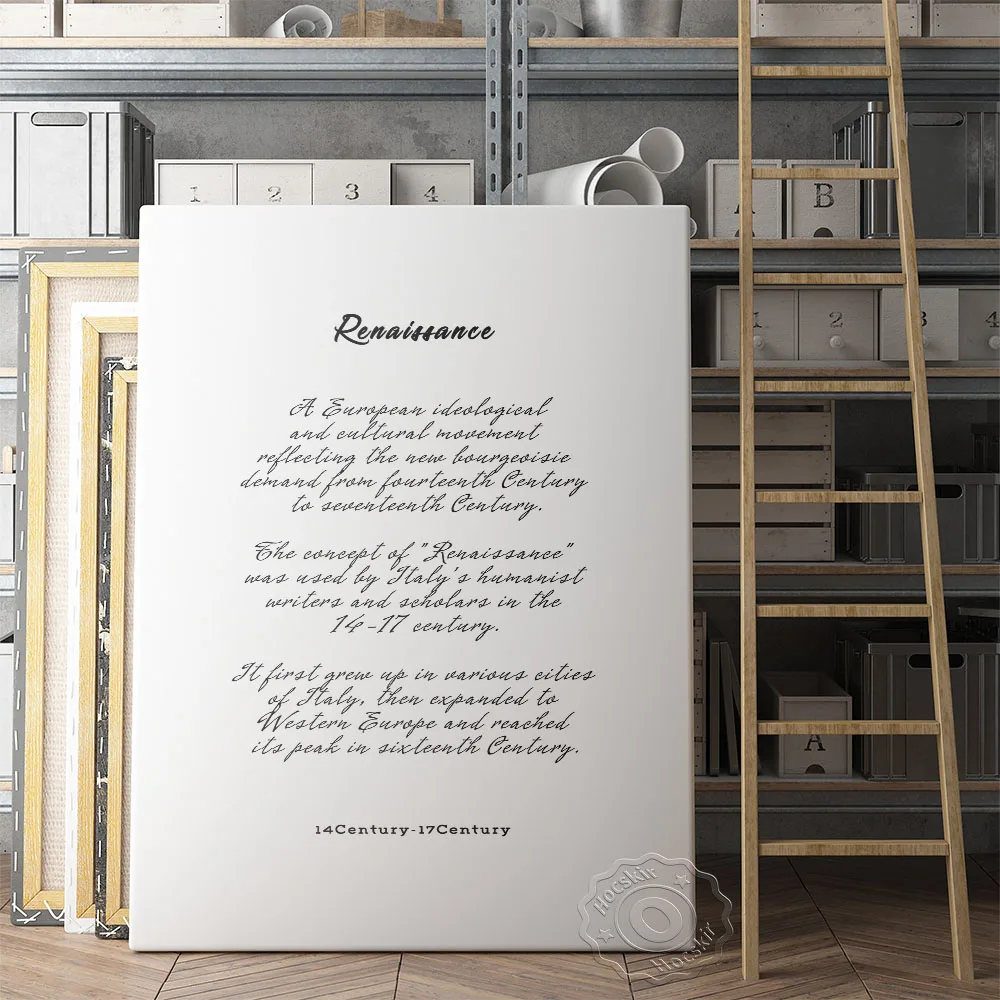 1 2 3 4
A B
1 2 3 4
A
Renaissance
A European ideological
and cultural movement
reflecting the new bourgeoisie
demand from fourteenth Century
to seventeenth Century.
The concept of "Renaissance"
was used by Italy's humanist
writers and scholars in the
14-17 century.
It first grew up in various cities
of Italy, then expanded to
Western Europe and reached
its peak in sixteenth Century.
14Century-17Century
Hocskir
Hocskir